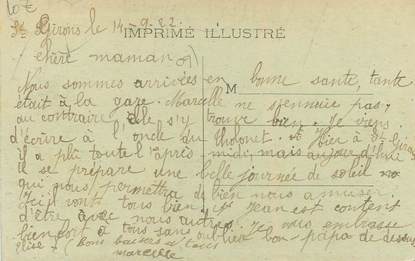 St Girons le 14-9-22.
IMPRIMÉ ILLUSTRÉ
chère maman
M
Nous sommes arrivées en bonne santé, tante
était à la gare. Marcelle ne s'ennuie pas,
au contraire, elle s'y trouve bien. Je viens
d'écrire à l'oncle du Tholonet. et Hier à St Girons
il a plu toute l'après midi, mais aujourd'hui
il se prépare une belle journée de soleil
qui nous permettra de bien nous amuser
Ici vont tous bien, et Jean est content
d'être avec nous autres. Je vous embrasse
bien fort à tous sans oublier bon-papa de
élise - (Bons baisers à tous
marcelle